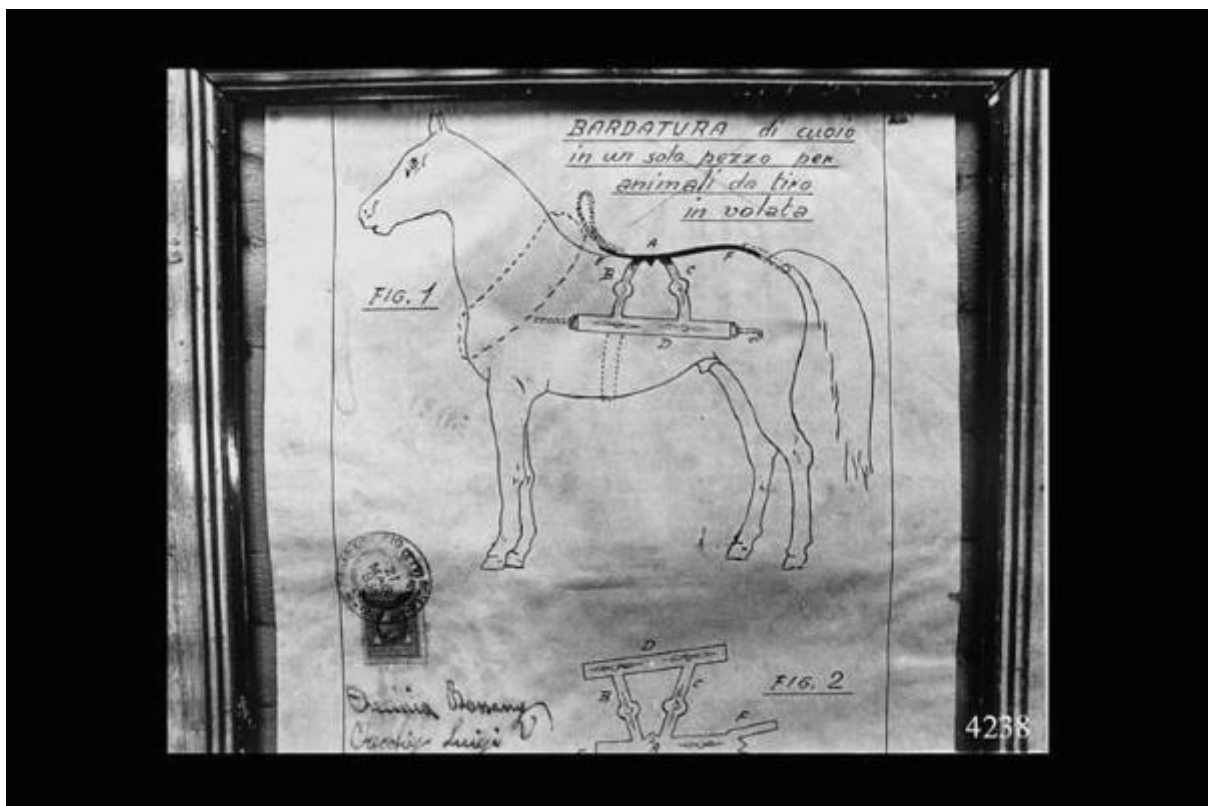 BARDATURA di cuoio
in un solo pezzo per
animali da tiro
in volata
A
F
B
C
FIG. 1
D
D
B
C
FIG. 2
F
A
Luigi
4238